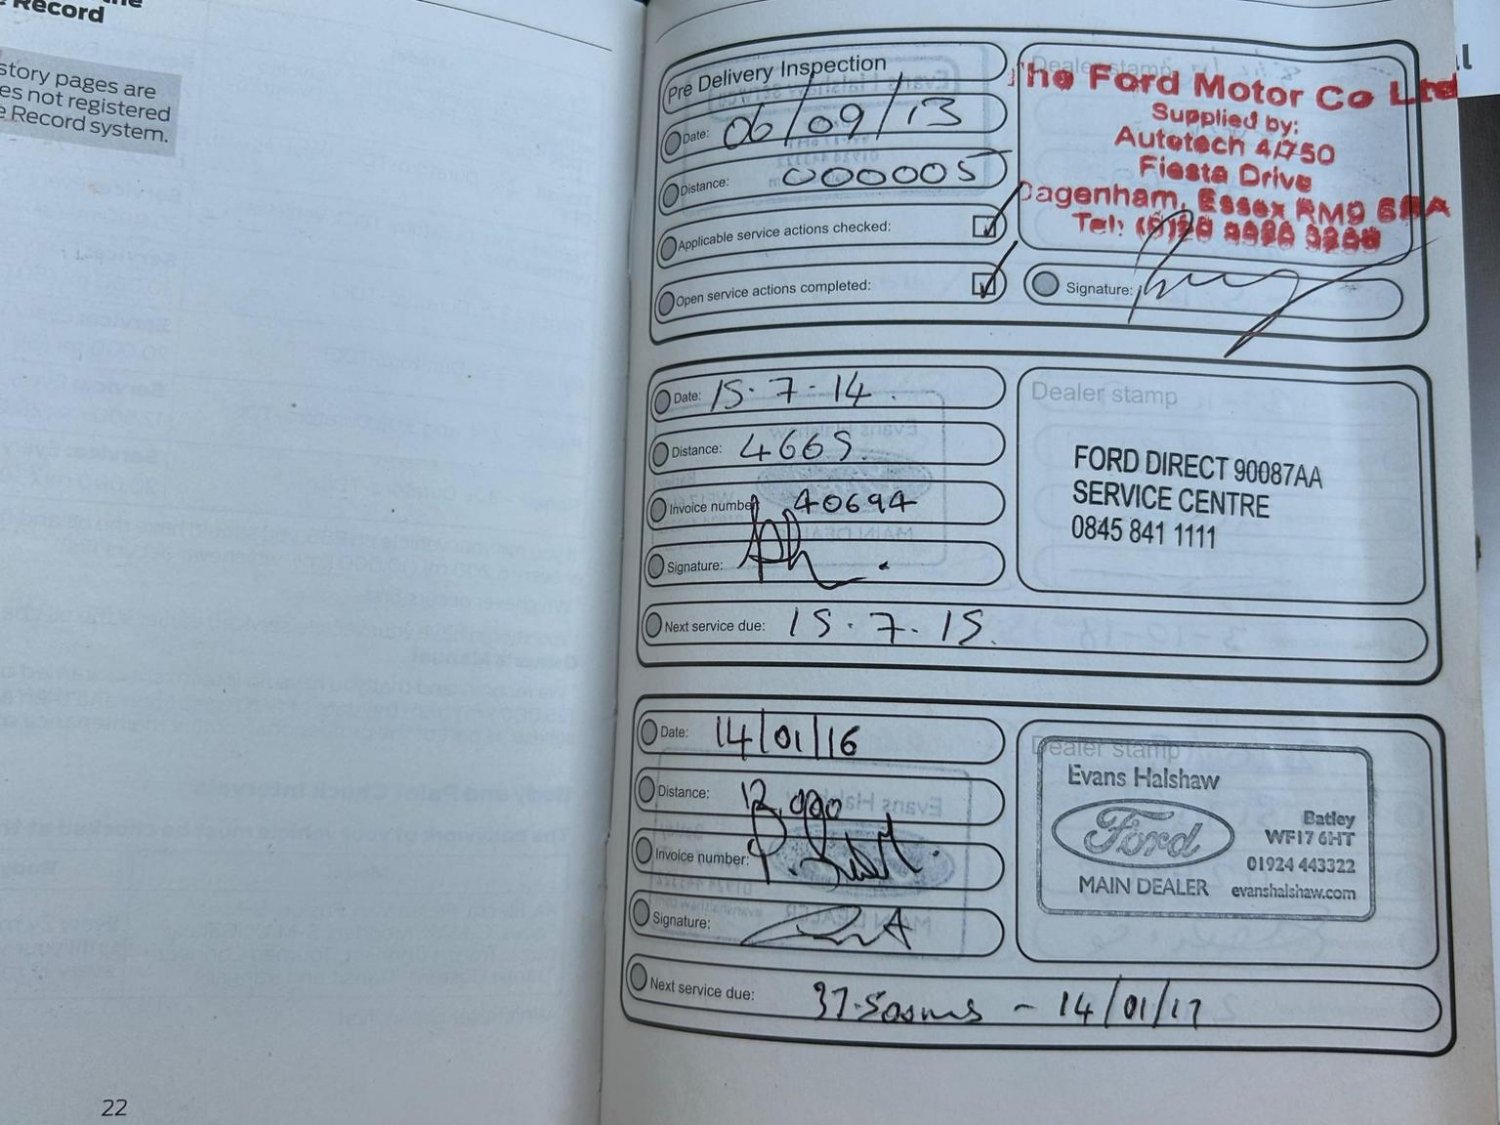 the
Record
story pages are
es not registered
e Record system.
22
Pre Delivery Inspection
Date: 06/09/13
Distance: 000005
Applicable service actions checked:
Open service actions completed:
Dealer stamp
The Ford Motor Co Ltd
Supplied by:
Autotech 4/750
Fiesta Drive
Dagenham, Essex RM9
Tel:
Signature:
Date: 15.7.14.
Distance: 4665.
Invoice number 40694
Signature:
Next service due: 15.7.15.
Dealer stamp
FORD DIRECT 90087AA
SERVICE CENTRE
0845 841 1111
Date: 14/01/16
Distance:
Invoice number:
Signature:
Next service due: 37.500mls - 14/01/17
Dealer stamp
Evans Halshaw
Ford
MAIN DEALER
Batley
WF17 6HT
01924 443322
evanshalshaw.com